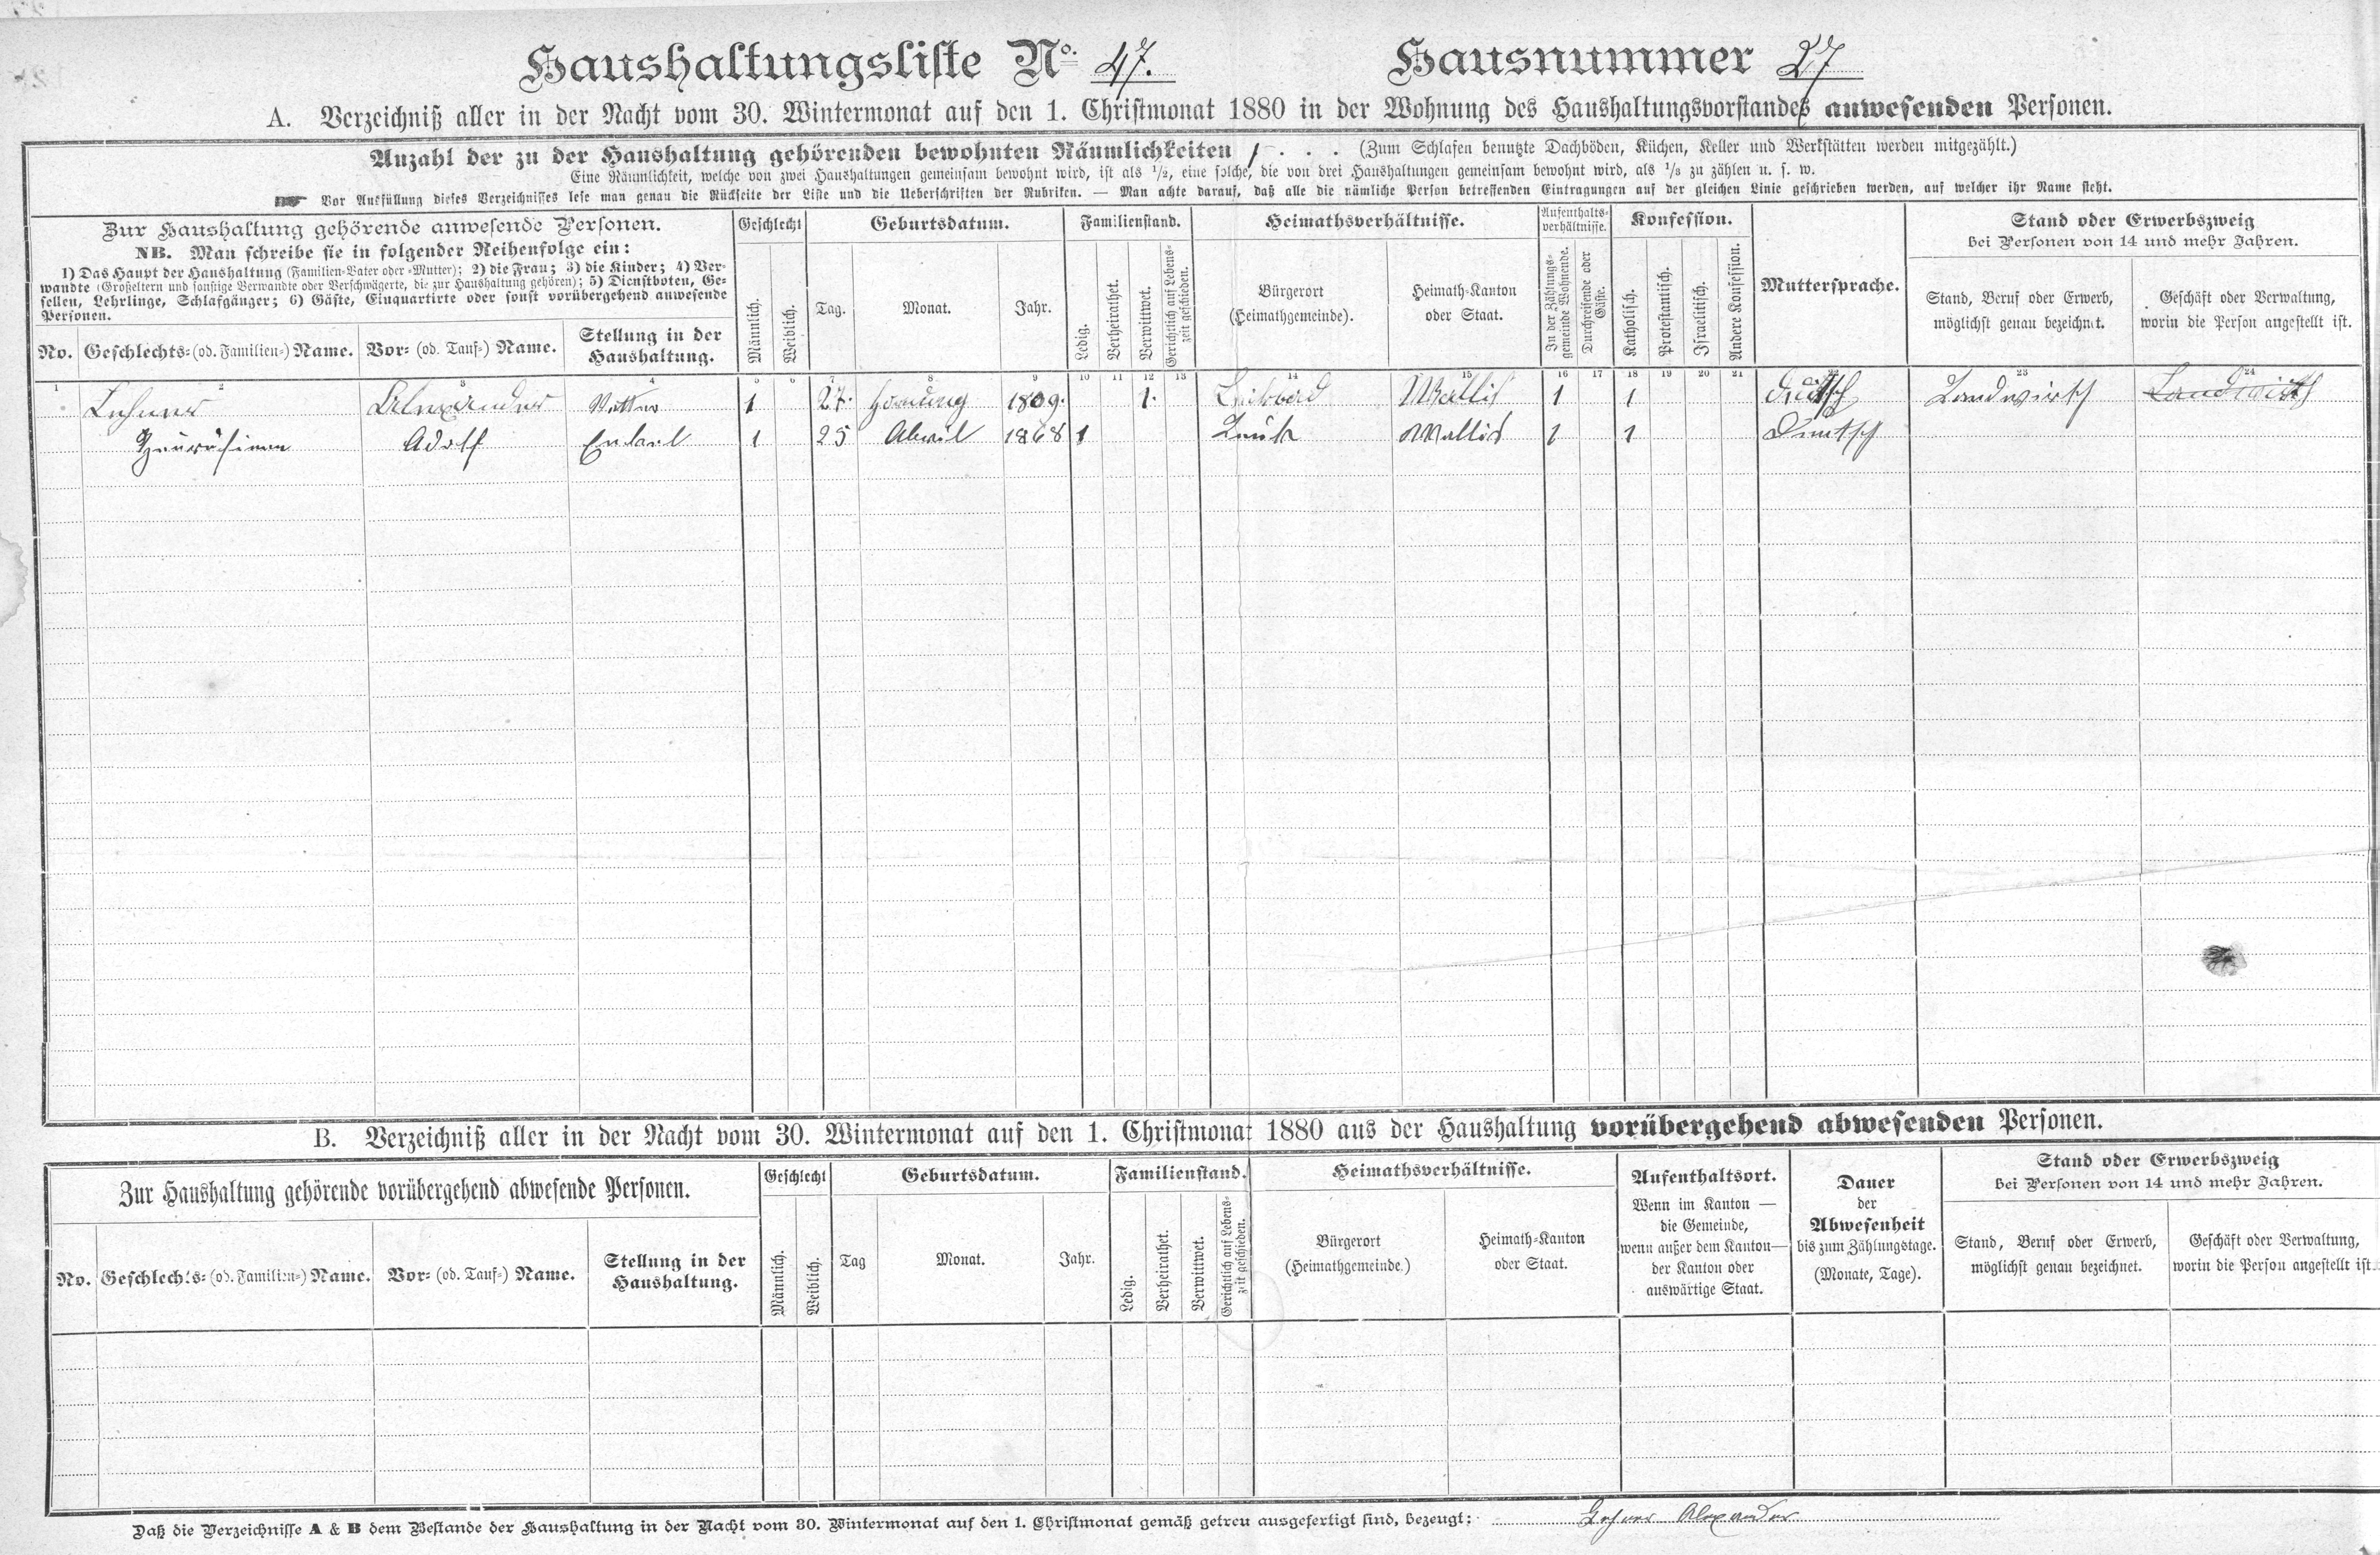 Haushaltungsliste No. 47. Hausnummer 27
A. Verzeichniß aller in der Nacht vom 30. Wintermonat auf den 1. Christmonat 1880 in der Wohnung des Haushaltungsvorstandes anwesenden Personen.
Anzahl der zu der Haushaltung gehörenden bewohnten Räumlichkeiten 1 . . . (Zum Schlafen benutzte Dachböden, Küchen, Keller und Werkstätten werden mitgezählt.)
Eine Räumlichkeit, welche von zwei Haushaltungen gemeinsam bewohnt wird, ist als 1/2, eine solche, die von drei Haushaltungen gemeinsam bewohnt wird, als 1/3 zu zählen u. s. w.
Vor Ausfüllung dieses Verzeichnisses lese man genau die Rückseite der Liste und die Ueberschriften der Rubriken. — Man achte darauf, daß alle die nämliche Person betreffenden Eintragungen auf der gleichen Linie geschrieben werden, auf welcher ihr Name steht.
Zur Haushaltung gehörende anwesende Personen.
NB. Man schreibe sie in folgender Reihenfolge ein:
1) Das Haupt der Haushaltung (Familien-Vater oder -Mutter); 2) die Frau; 3) die Kinder; 4) Ver-
wandte (Großeltern und sonstige Verwandte oder Verschwägerte, die zur Haushaltung gehören); 5) Dienstboten, Ge-
sellen, Lehrlinge, Schlafgänger; 6) Gäste, Einquartirte oder sonst vorübergehend anwesende
Personen.
No. Geschlechts- (od. Familien-) Name. Vor- (od. Tauf-) Name. Stellung in der
Haushaltung.
Geschlecht
Männlich.
Weiblich.
Geburtsdatum.
Tag. Monat. Jahr.
Familienstand.
Ledig.
Verheirathet.
Verwittwet.
Gerichtlich auf Lebens-
zeit geschieden.
Heimathsverhältnisse.
Bürgerort
(Heimathgemeinde).
Heimath-Kanton
oder Staat.
Aufenthalts-
verhältnisse.
In der Zählungs-
gemeinde Wohnende.
Durchreisende oder
Gäste.
Konfession.
Katholisch.
Protestantisch.
Israelitisch.
Andere Konfession.
Muttersprache.
Stand oder Erwerbszweig
bei Personen von 14 und mehr Jahren.
Stand, Beruf oder Erwerb,
möglichst genau bezeichnet.
Geschäft oder Verwaltung,
worin die Person angestellt ist.
1 2 3 4 5 6 7 8 9 10 11 12 13 14 15 16 17 18 19 20 21 22 23 24
Lehner Alexander Vatter 1 27. Hornung 1809. 1. Leukerbad Wallis 1 1 deutsch Landwirth Landwirth
Adolf Enkel 1 25 Abril 1868 1 Leuk Wallis 1 1 Deutsch
B. Verzeichniß aller in der Nacht vom 30. Wintermonat auf den 1. Christmonat 1880 aus der Haushaltung vorübergehend abwesenden Personen.
Zur Haushaltung gehörende vorübergehend abwesende Personen.
No. Geschlechts- (od. Familien-) Name. Vor- (od. Tauf-) Name. Stellung in der
Haushaltung.
Geschlecht
Männlich.
Weiblich.
Geburtsdatum.
Tag Monat. Jahr.
Familienstand.
Ledig.
Verheirathet.
Verwittwet.
Gerichtlich auf Lebens-
zeit geschieden.
Heimathsverhältnisse.
Bürgerort
(Heimathgemeinde.)
Heimath-Kanton
oder Staat.
Aufenthaltsort.
Wenn im Kanton —
die Gemeinde,
wenn außer dem Kanton—
der Kanton oder
auswärtige Staat.
Dauer
der
Abwesenheit
bis zum Zählungstage.
(Monate, Tage).
Stand oder Erwerbszweig
bei Personen von 14 und mehr Jahren.
Stand, Beruf oder Erwerb,
möglichst genau bezeichnet.
Geschäft oder Verwaltung,
worin die Person angestellt ist.
Daß die Verzeichnisse A & B dem Bestande der Haushaltung in der Nacht vom 30. Wintermonat auf den 1. Christmonat gemäß getreu ausgefertigt sind, bezeugt: Lehner Alexander